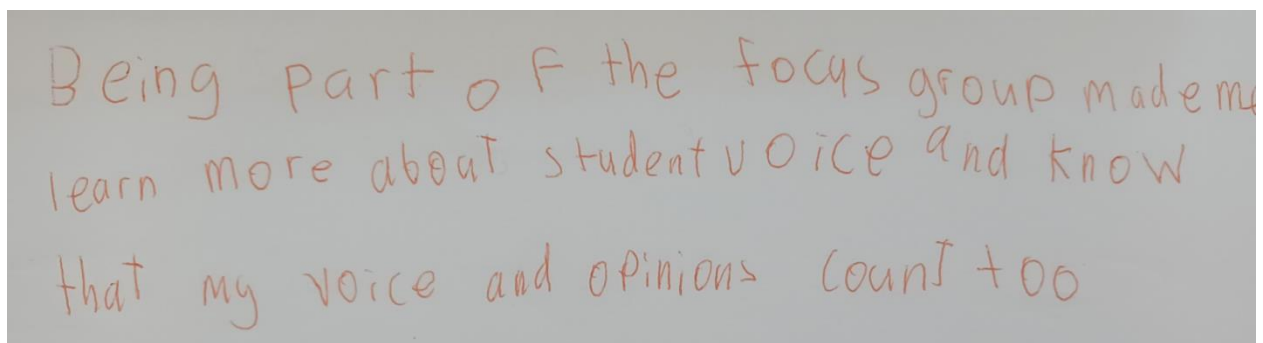 Being part of the focus group made me
learn more about student voice and know
that my voice and opinions count too